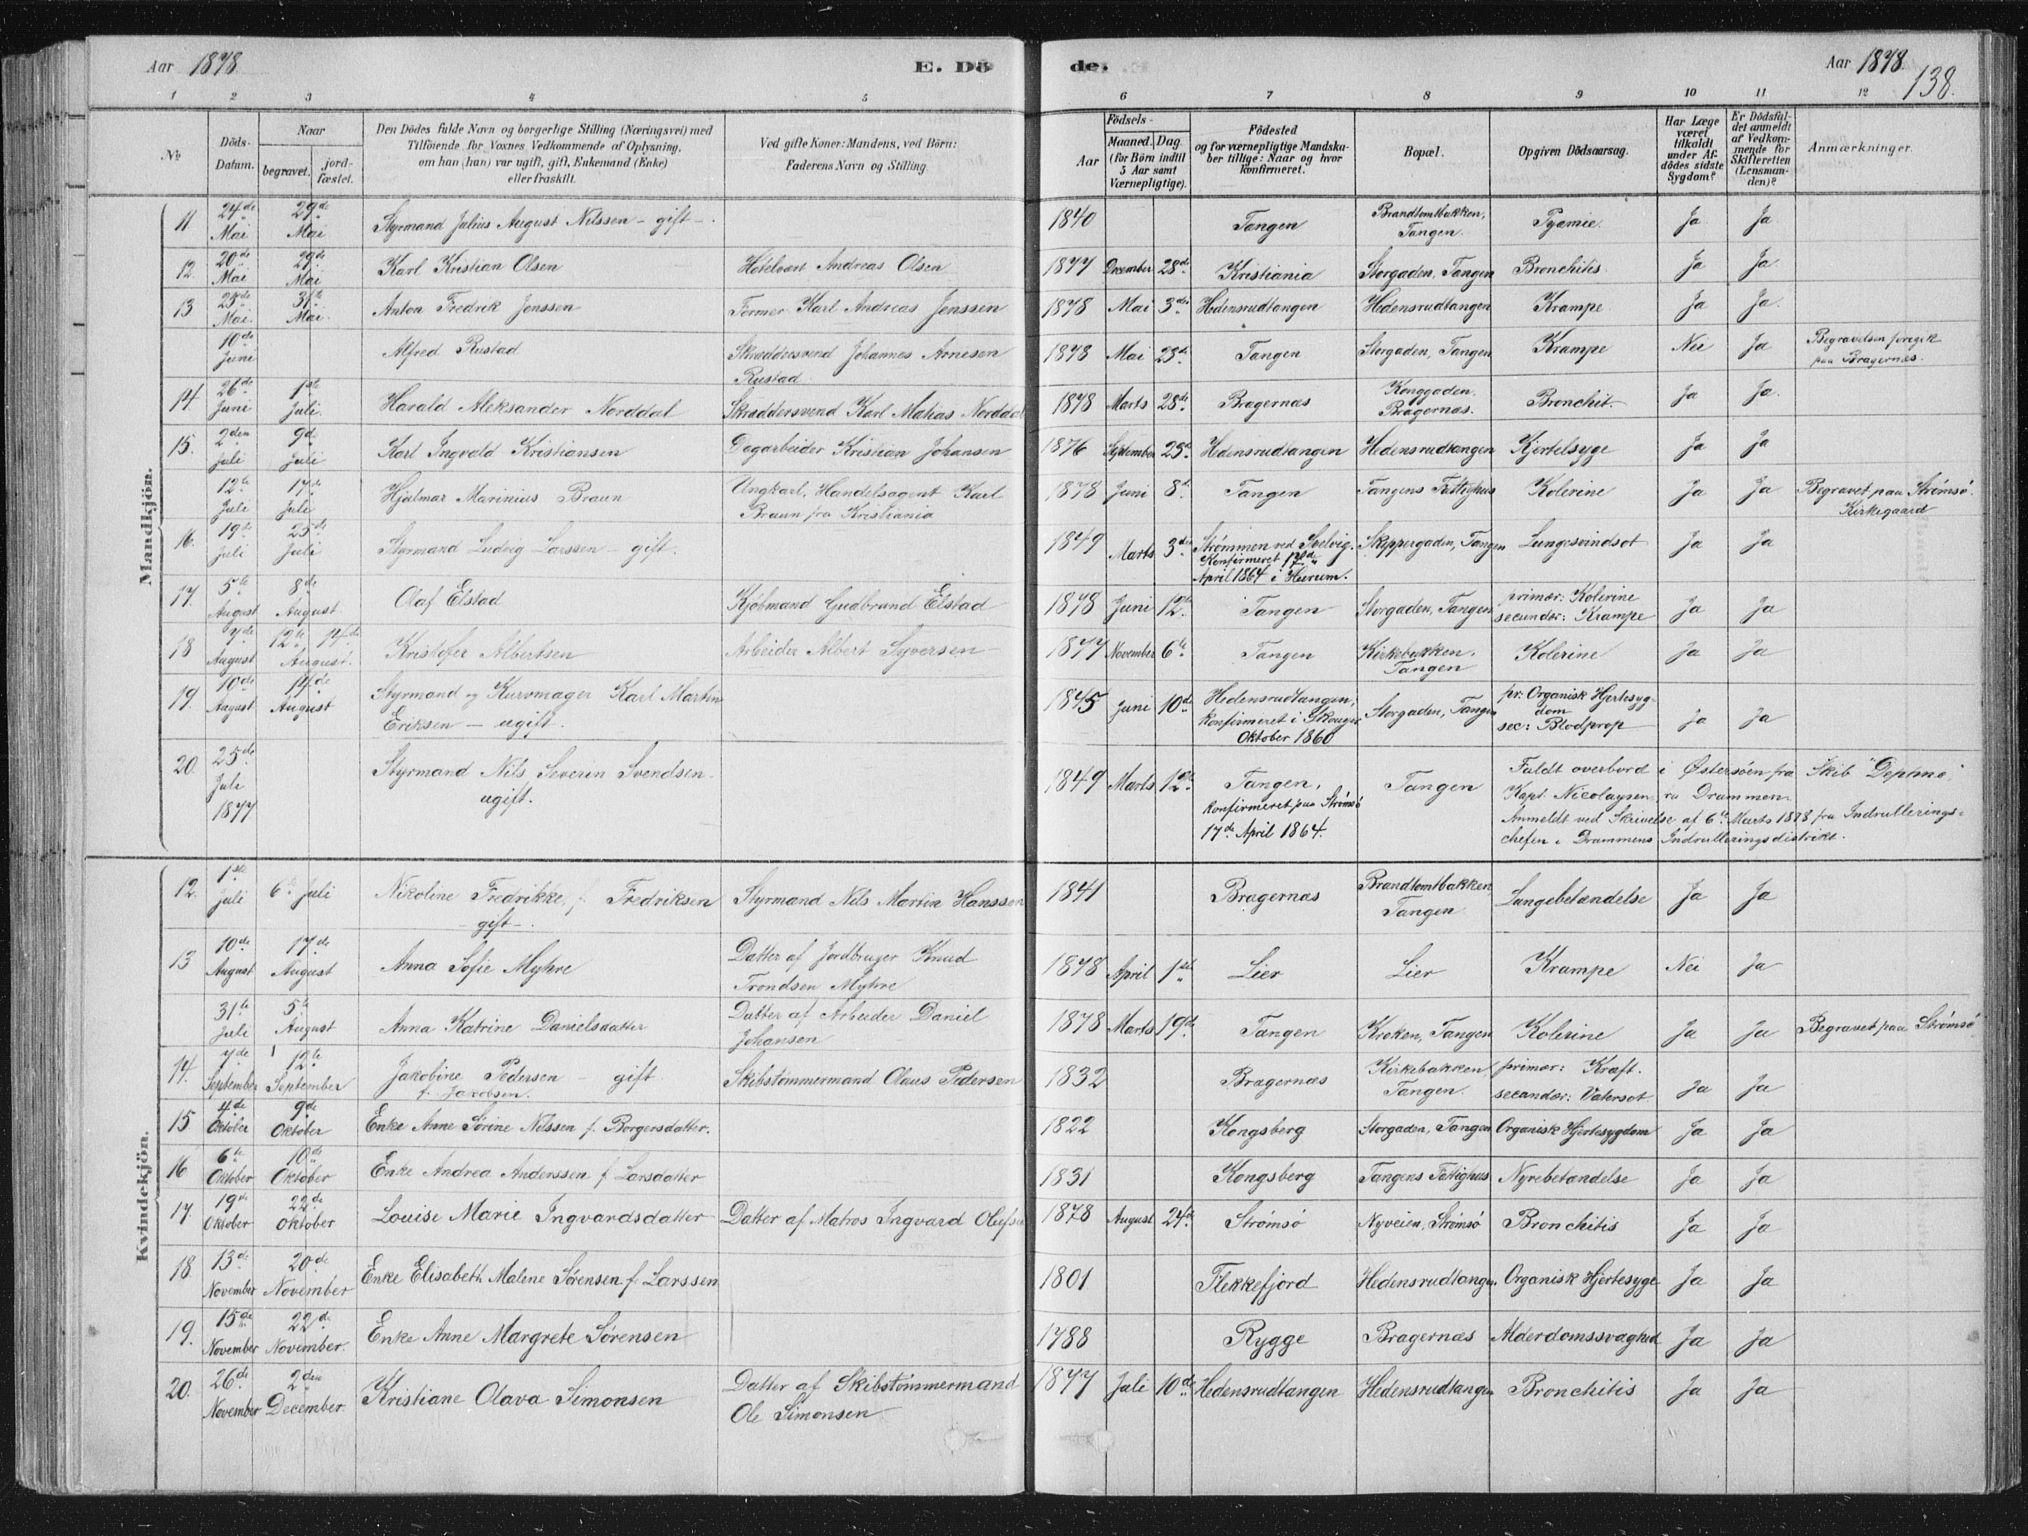 Aar 1878. E. Dö de. Aar 1878. 138.
1 2 3 4 5 6 7 8 9 10 11 12
No
Döds-Datum.
Naar
begravet.
jord-fæstet.
Den Dödes fulde Navn og borgerlige Stilling (Næringsvei) med
Tilföiende for Voxnes Vedkommende af Oplysning,
om han (hun) var ugift, gift, Enkemand (Enke)
eller fraskilt.
Ved gifte Koner: Mandens, ved Börn:
Faderens Navn og Stilling.
Födsels-
Aar
Maaned. Dag.
(for Börn indtil
5 Aar samt
Værnepligtige).
Födested
og for værnepligtige Mandska-
ber tillige: Naar og hvor
konfirmeret.
Bopæl.
Opgiven Dödsaarsag.
Har Læge
været
tilkaldt
under Af-
dödes sidste
Sygdom?
Er Dödsfal-
det anmeldt
af Vedkom-
mende for
Skifteretten
(Lensman-
den)?
Anmærkninger.
Mandkjön.
11 24de Mai 29de Mai Styrmand Julius August Nilssen - gift - 1840 Tangen Brandtomtbakken, Tangen. Pyæmie. Ja Ja
12. 20de Mai 29de Mai Karl Kristian Olsen Hotelvært Andreas Olsen 1877 December 28de Kristiania Storgaden, Tangen Bronchitis. Ja Ja
13 23de Mai. 31te Mai. Anton Fredrik Jenssen Former Karl Andreas Jenssen 1878 Mai 3de Hedensrudtangen Hedensrudtangen Krampe. Ja Ja.
10de Juni Alfred Rustad Skræddersvend Johannes Arnesen Rustad. 1878 Mai 23de Tangen Storgaden, Tangen Krampe Nei Ja Begravelsen foregik paa Bragernæs.
14 26de Juni 1ste Juli. Harald Aleksander Norddal Skræddersvend Karl Matias Norddal 1878 Marts 28de Bragernæs Konggaden, Bragernæs. Bronchit. Ja Ja.
15. 2den Juli 9de Juli Karl Ingvald Kristiansen Dagarbeider Kristian Johansen 1876 September 25de Hedensrudtangen Hedensrudtangen Kjertelsyge Ja Ja
12te Juli 17de Juli Hjalmar Marinius Braun Ungkarl, Handelsagent Karl Braun fra Kristiania 1878 Juni 8de Tangen Tangens Fattighus Kolerine Ja Ja Begravet paa Strømsø Kirkegaard
16. 19de Juli 25de Juli Styrmand Ludvig Larssen - gift. 1849 Marts 3die Strømmen ved Svelvig. Konfirmeret 17de April 1864 i Hurum. Skippergaden, Tangen Lungesvindsot Ja Ja
17. 5te August 8de August. Olaf Elstad Kjøbmand Gudbrand Elstad 1878 Juni 12te Tangen Storgaden, Tangen primær: Kolerine secundær: Krampe Ja Ja
18 7de August 12te 14de August. Kristofer Albertsen Arbeider Albert Syversen 1877 November 6te Tangen Kirkebakken, Tangen Kolerine Ja Ja
19. 10de August 14de August Styrmand og Kurvmager Karl Martin Eriksen - ugift. 1845 Juni 10de Hedensrudtangen, konfirmeret i Skouger Oktober 1860 Storgaden, Tangen pr: Organisk Hjertesygdom sec: Blodprop Ja Ja
20. 25de Juli 1877 Styrmand Nils Severin Svendsen ugift. 1849 Marts 12te Tangen, konfirmeret paa Strømsø 17de April 1864. Tangen Faldt overbord i Østersøen fra Skib
Kapt. Nicolaysen, Drammen.
Anmeldt ved Skrivelse af 6te Marts 1878 fra Indrullerings-
chefen i Drammens Indrulleringsdistrikt.
Kvindekjön.
12. 1ste Juli 6te Juli Nikoline Fredrikke, f. Fredriksen - gift - Styrmand Nils Martin Hanssen 1841 Bragernæs Brandtomtbakken Tangen Lungebetændelse Ja Ja
13 10de August 17de August Anna Sofie Myhre Datter af Jordbruger Knud Trondsen Myhre 1878 April 1ste Lier Lier Krampe Nei Ja
31te Juli 5te August Anna Katrine Danielsdatter Datter af Arbeider Daniel Johansen 1878 Marts 19de Tangen Kroken, Tangen Kolerine Ja Ja Begravet paa Strømsø
14. 7de September 12te September Jakobine Pedersen - gift f. Jacobsen. Skibstømmermand Olaus Pedersen 1832 Bragernæs Kirkebakken Tangen. primær: Kræft. secundær: Vatersot Ja Ja
15 4de Oktober 9de Oktober Enke Anne Sørine Nilssen f. Borgersdatter. 1822 Kongsberg Storgaden, Tangen Organisk Hjertesygdom Ja Ja
16 6te Oktober 10de Oktober Enke Andrea Anderssen f. Larsdatter 1831 Kongsberg Tangens Fattighus Nyrebetændelse Ja Ja
17 19de Oktober 22de Oktober Louise Marie Ingvardsdatter Datter af Matros Ingvard Olufsen 1878 August 24de Strømsø Nyveien, Strømsø Bronchitis Ja Ja
18. 13de November 20de November Enke Elisabeth Maline Sørensen f. Larssen 1801 Flekkefjord Hedensrudtangen. Organisk Hjertesyge Ja Ja
19. 15de November 22de November. Enke Anne Margrete Sørensen 1788 Rygge Bragernæs Alderdomssvaghed Ja Ja
20. 26de November 2den December. Kristiane Olava Simonsen Datter af Skibstømmermand Ole Simonsen 1877 Juli 10de Hedensrudtangen Hedensrudtangen Bronchitis Ja Ja